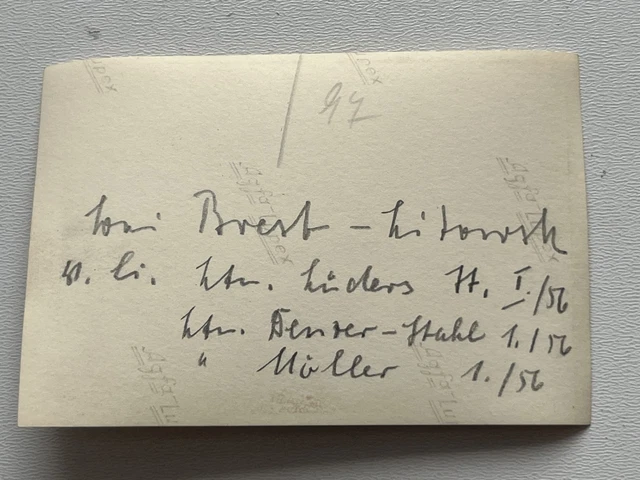 97
bei Brest-Litowsk
v. li. Ltn. Lüders H. I./56
Ltn. Fenzer-Stahl 1./56
" Möller 1./56
Agfa Lupex
Agfa Lupex
Agfa Lu
Agfa Lu